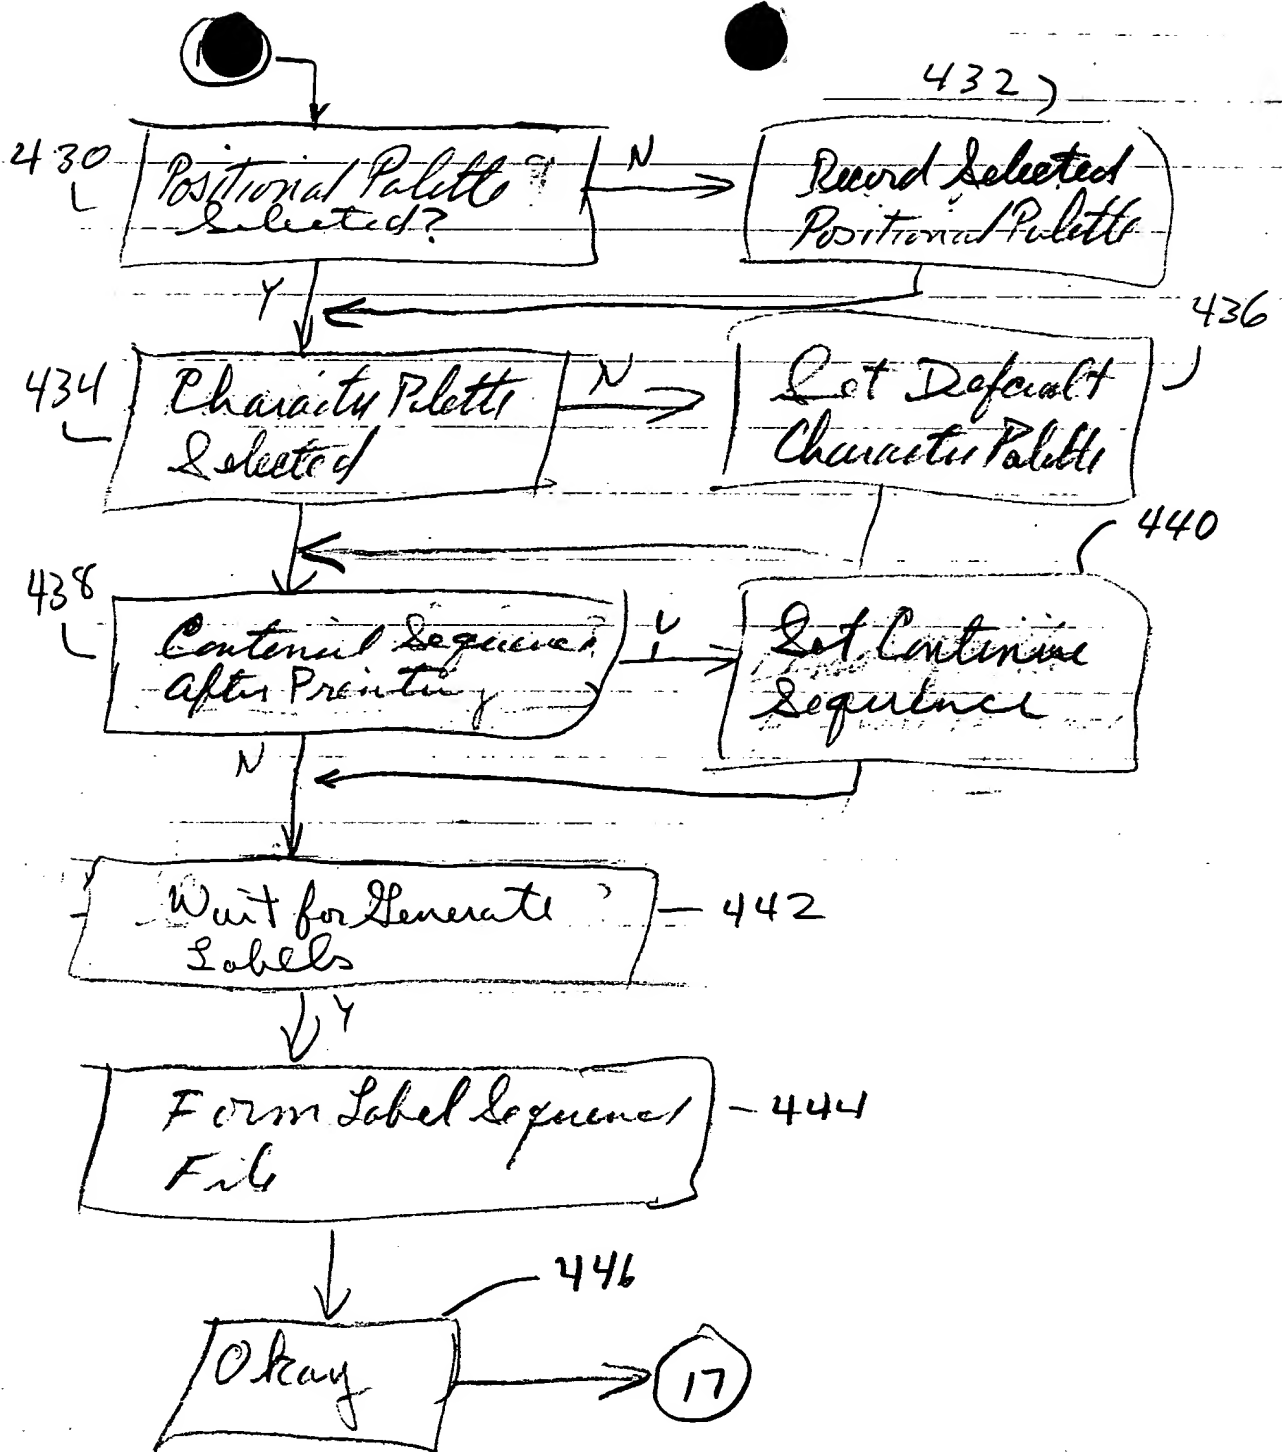 432
430
Positional Palette ?
Selected?
N
Record Selected
Positional Palette
Y
436
434
Character Palette
Selected
N
Set Default
Character Palette
440
438
Sequence
After Printing
Set Continue
Sequence
N
Wait for Generate ?
Labels
442
Y
Form Label Sequence
File
444
446
Okay
17